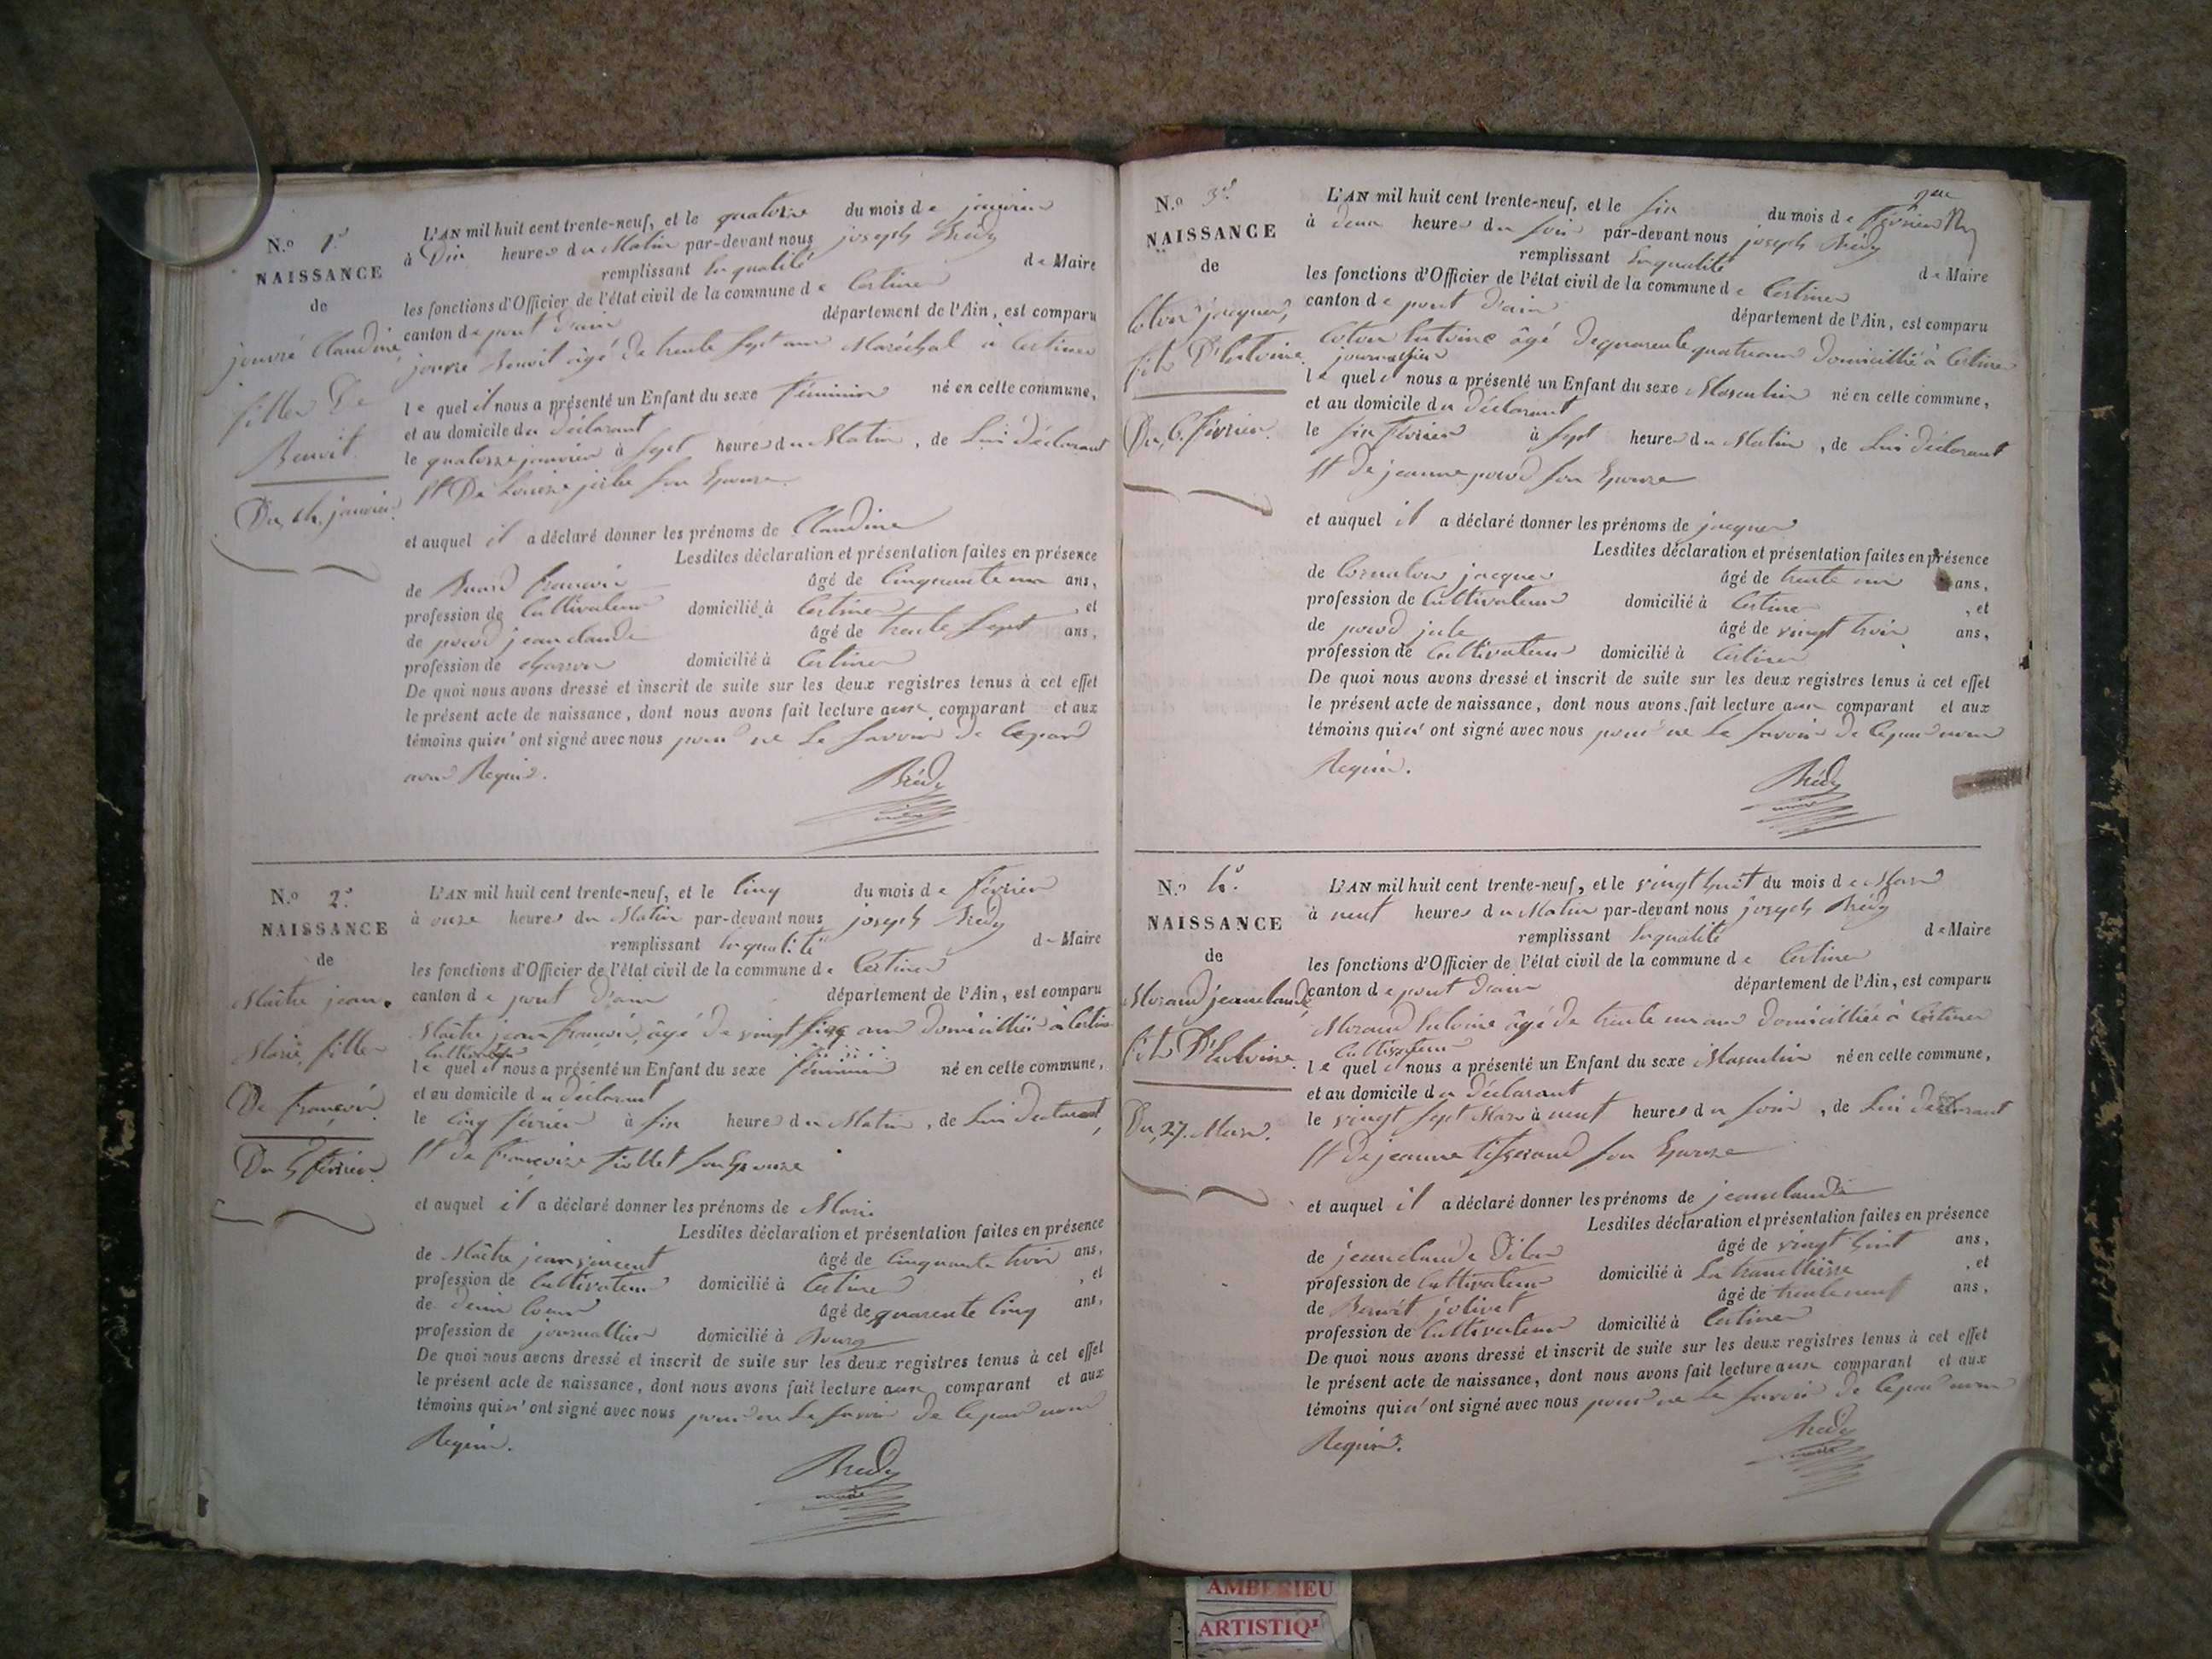 N.o 1.o
NAISSANCE
de
jouvré Claudine
fille De
Benoit.
Du, 14. janvier.
L'AN mil huit cent trente-neuf, et le quatorze du mois de janvier
à Dix heures du Matin par-devant nous joseph Brédy
remplissant En qualité de Maire
les fonctions d'Officier de l'état civil de la commune de Certines
canton de pont d'ain département de l'Ain, est comparu
jouvré Benoit âgé de trente sept ans Maréchal à Certines
le quel il nous a présenté un Enfant du sexe féminin né en cette commune,
et au domicile du déclarant
le quatorze janvier à sept heures du Matin, de Lui déclarant
Et De Louise son Epouse
et auquel il a déclaré donner les prénoms de Claudine
Lesdites déclaration et présentation faites en présence
de françois âgé de Cinquante un ans,
profession de Cultivateur domicilié à Certines et
de jean claude âgé de trente sept ans,
profession de charron domicilié à Certines
De quoi nous avons dressé et inscrit de suite sur les deux registres tenus à cet effet
le présent acte de naissance, dont nous avons fait lecture aux comparant et aux
témoins qui n'ont signé avec nous pour ne Le savoir de Cepar
nous Requis.
Brédy
N.o 2.o
NAISSANCE
de
Maître jean.
Marie, fille
De françois.
Du 5 février.
L'AN mil huit cent trente-neuf, et le Cinq du mois de février
à onze heures du Matin par-devant nous joseph Brédy
remplissant En qualité de Maire
les fonctions d'Officier de l'état civil de la commune de Certines
canton de pont d'ain département de l'Ain, est comparu
Maître jean françois, âgé de vingt cinq ans domicillié à Certines
Cultivateur
le quel il nous a présenté un Enfant du sexe féminin né en cette commune,
et au domicile du déclarant
le cinq février à six heures du Matin, de Lui déclarant,
Et de françoise fiollet son Epouse
et auquel il a déclaré donner les prénoms de Marie
Lesdites déclaration et présentation faites en présence
de Maître jean vincent âgé de Cinquante trois ans,
profession de Cultivateur domicilié à Certines, et
de denis âgé de quarente Cinq ans,
profession de journallier domicilié à Bourg
De quoi nous avons dressé et inscrit de suite sur les deux registres tenus à cet effet
le présent acte de naissance, dont nous avons fait lecture aux comparant et aux
témoins qui n'ont signé avec nous pour ne Le savoir de Cepar nous
Requis.
Brédy
N.o 3.o
NAISSANCE
de
Coton jacques,
fils D'Antoine.
Du, 6. février.
L'AN mil huit cent trente-neuf, et le six du mois de février
à deux heures du soir par-devant nous joseph Brédy
remplissant En qualité de Maire
les fonctions d'Officier de l'état civil de la commune de Certines
canton de pont d'ain département de l'Ain, est comparu
Coton Antoine âgé de quarente quatre ans domicillié à Certines
journallier
le quel il nous a présenté un Enfant du sexe Masculin né en cette commune,
et au domicile du déclarant
le six février à sept heures du Matin, de Lui déclarant
Et De jeanne son Epouse
et auquel il a déclaré donner les prénoms de jacques
Lesdites déclaration et présentation faites en présence
de Cornaton jacques âgé de trente un ans,
profession de Cultivateur domicilié à Certines, et
de âgé de vingt trois ans,
profession de Cultivateur domicilié à Certines
De quoi nous avons dressé et inscrit de suite sur les deux registres tenus à cet effet
le présent acte de naissance, dont nous avons fait lecture aux comparant et aux
témoins qui n'ont signé avec nous pour ne Le savoir de Cepar nous
Requis.
Brédy
N.o 4.o
NAISSANCE
de
Morand jeanclaude,
fils D'Antoine.
Du, 27. Mars.
L'AN mil huit cent trente-neuf, et le vingt huit du mois de Mars
à neuf heures du Matin par-devant nous joseph Brédy
remplissant En qualité de Maire
les fonctions d'Officier de l'état civil de la commune de Certines
canton de pont d'ain département de l'Ain, est comparu
Morand Antoine âgé de trente un ans domicilliée à Certines
Cultivateur
le quel il nous a présenté un Enfant du sexe Masculin né en cette commune,
et au domicile du déclarant
le vingt sept Mars à neuf heures du soir, de Lui déclarant
Et de jeanne tisserand son Epouse
et auquel il a déclaré donner les prénoms de jeanclaude
Lesdites déclaration et présentation faites en présence
de jeanclaude âgé de vingt huit ans,
profession de Cultivateur domicilié à La tranclière, et
de Benoit jolivet âgé de trente neuf ans,
profession de Cultivateur domicilié à Certines
De quoi nous avons dressé et inscrit de suite sur les deux registres tenus à cet effet
le présent acte de naissance, dont nous avons fait lecture aux comparant et aux
témoins qui n'ont signé avec nous pour ne Le savoir de Cepar nous
Requis.
Brédy
AMBERIEU
ARTISTIQ